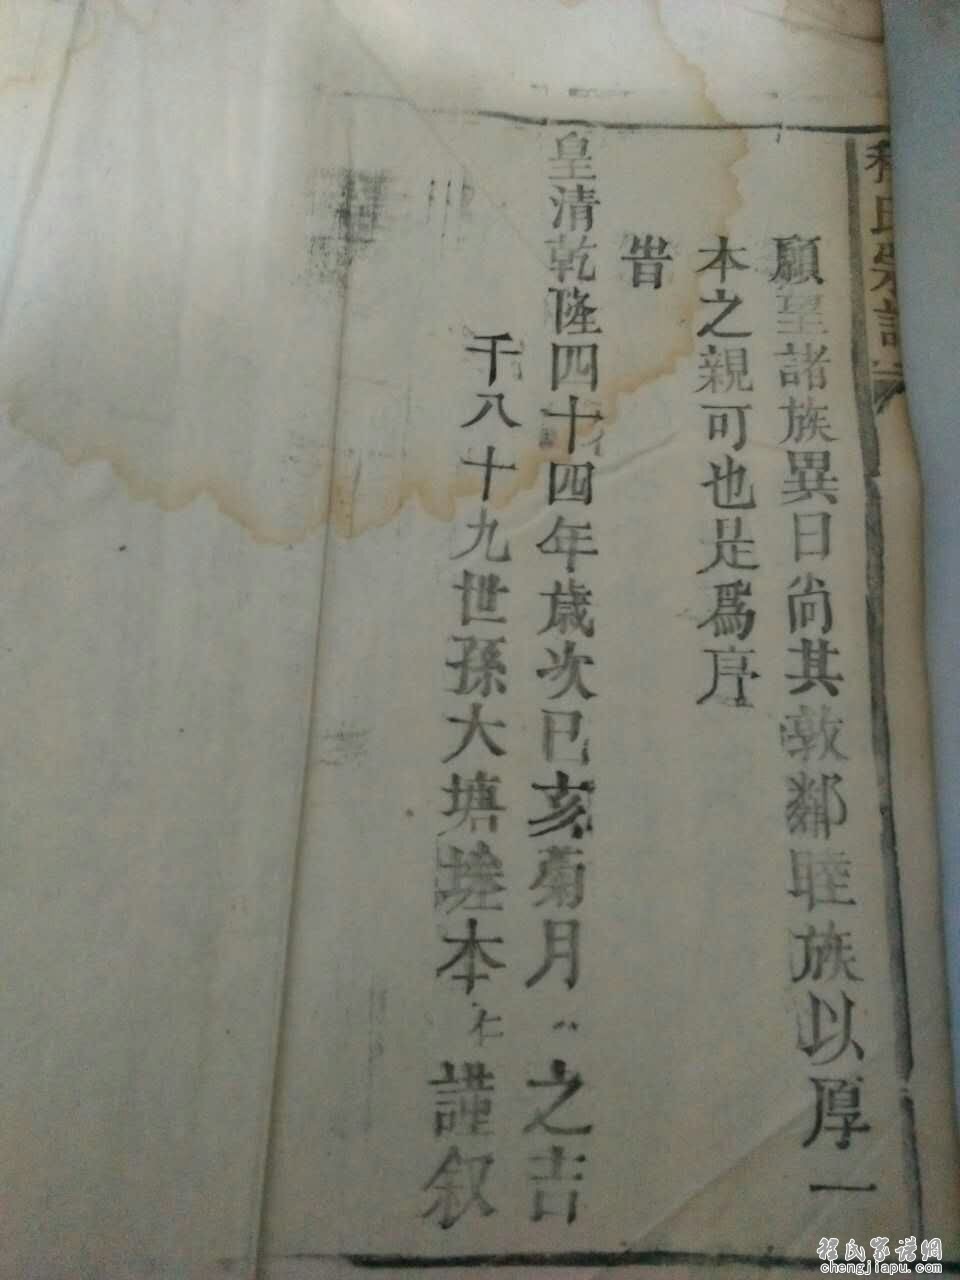 程氏宗譜
願望諸族異日尚其敦鄰睦族以厚一
本之親可也是為序
旹
皇清乾隆四十四年歲次己亥菊月之吉
千八十九世孫大塘本謹叙
程氏家谱網
chengjiapu.com